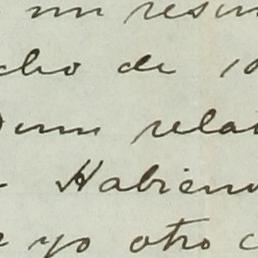 un resu
cho de 10
Dunn rela
Habien
yo otro c